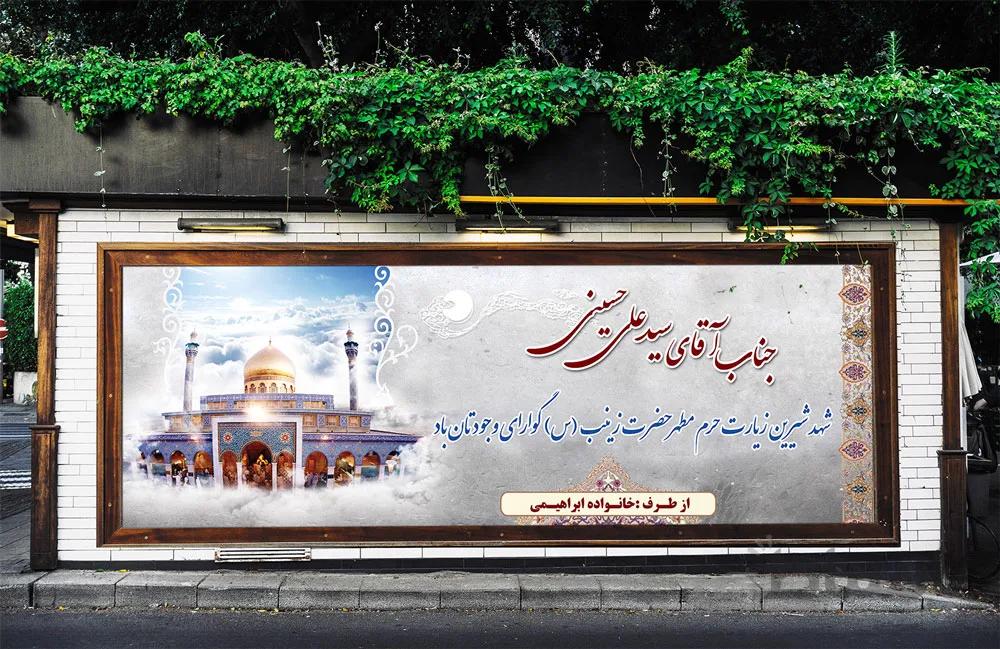 جناب آقای سید علی حسینی
شهد شیرین زیارت حرم مطهر حضرت زینب (س) گوارای وجودتان باد
از طرف :خانواده ابراهیمی